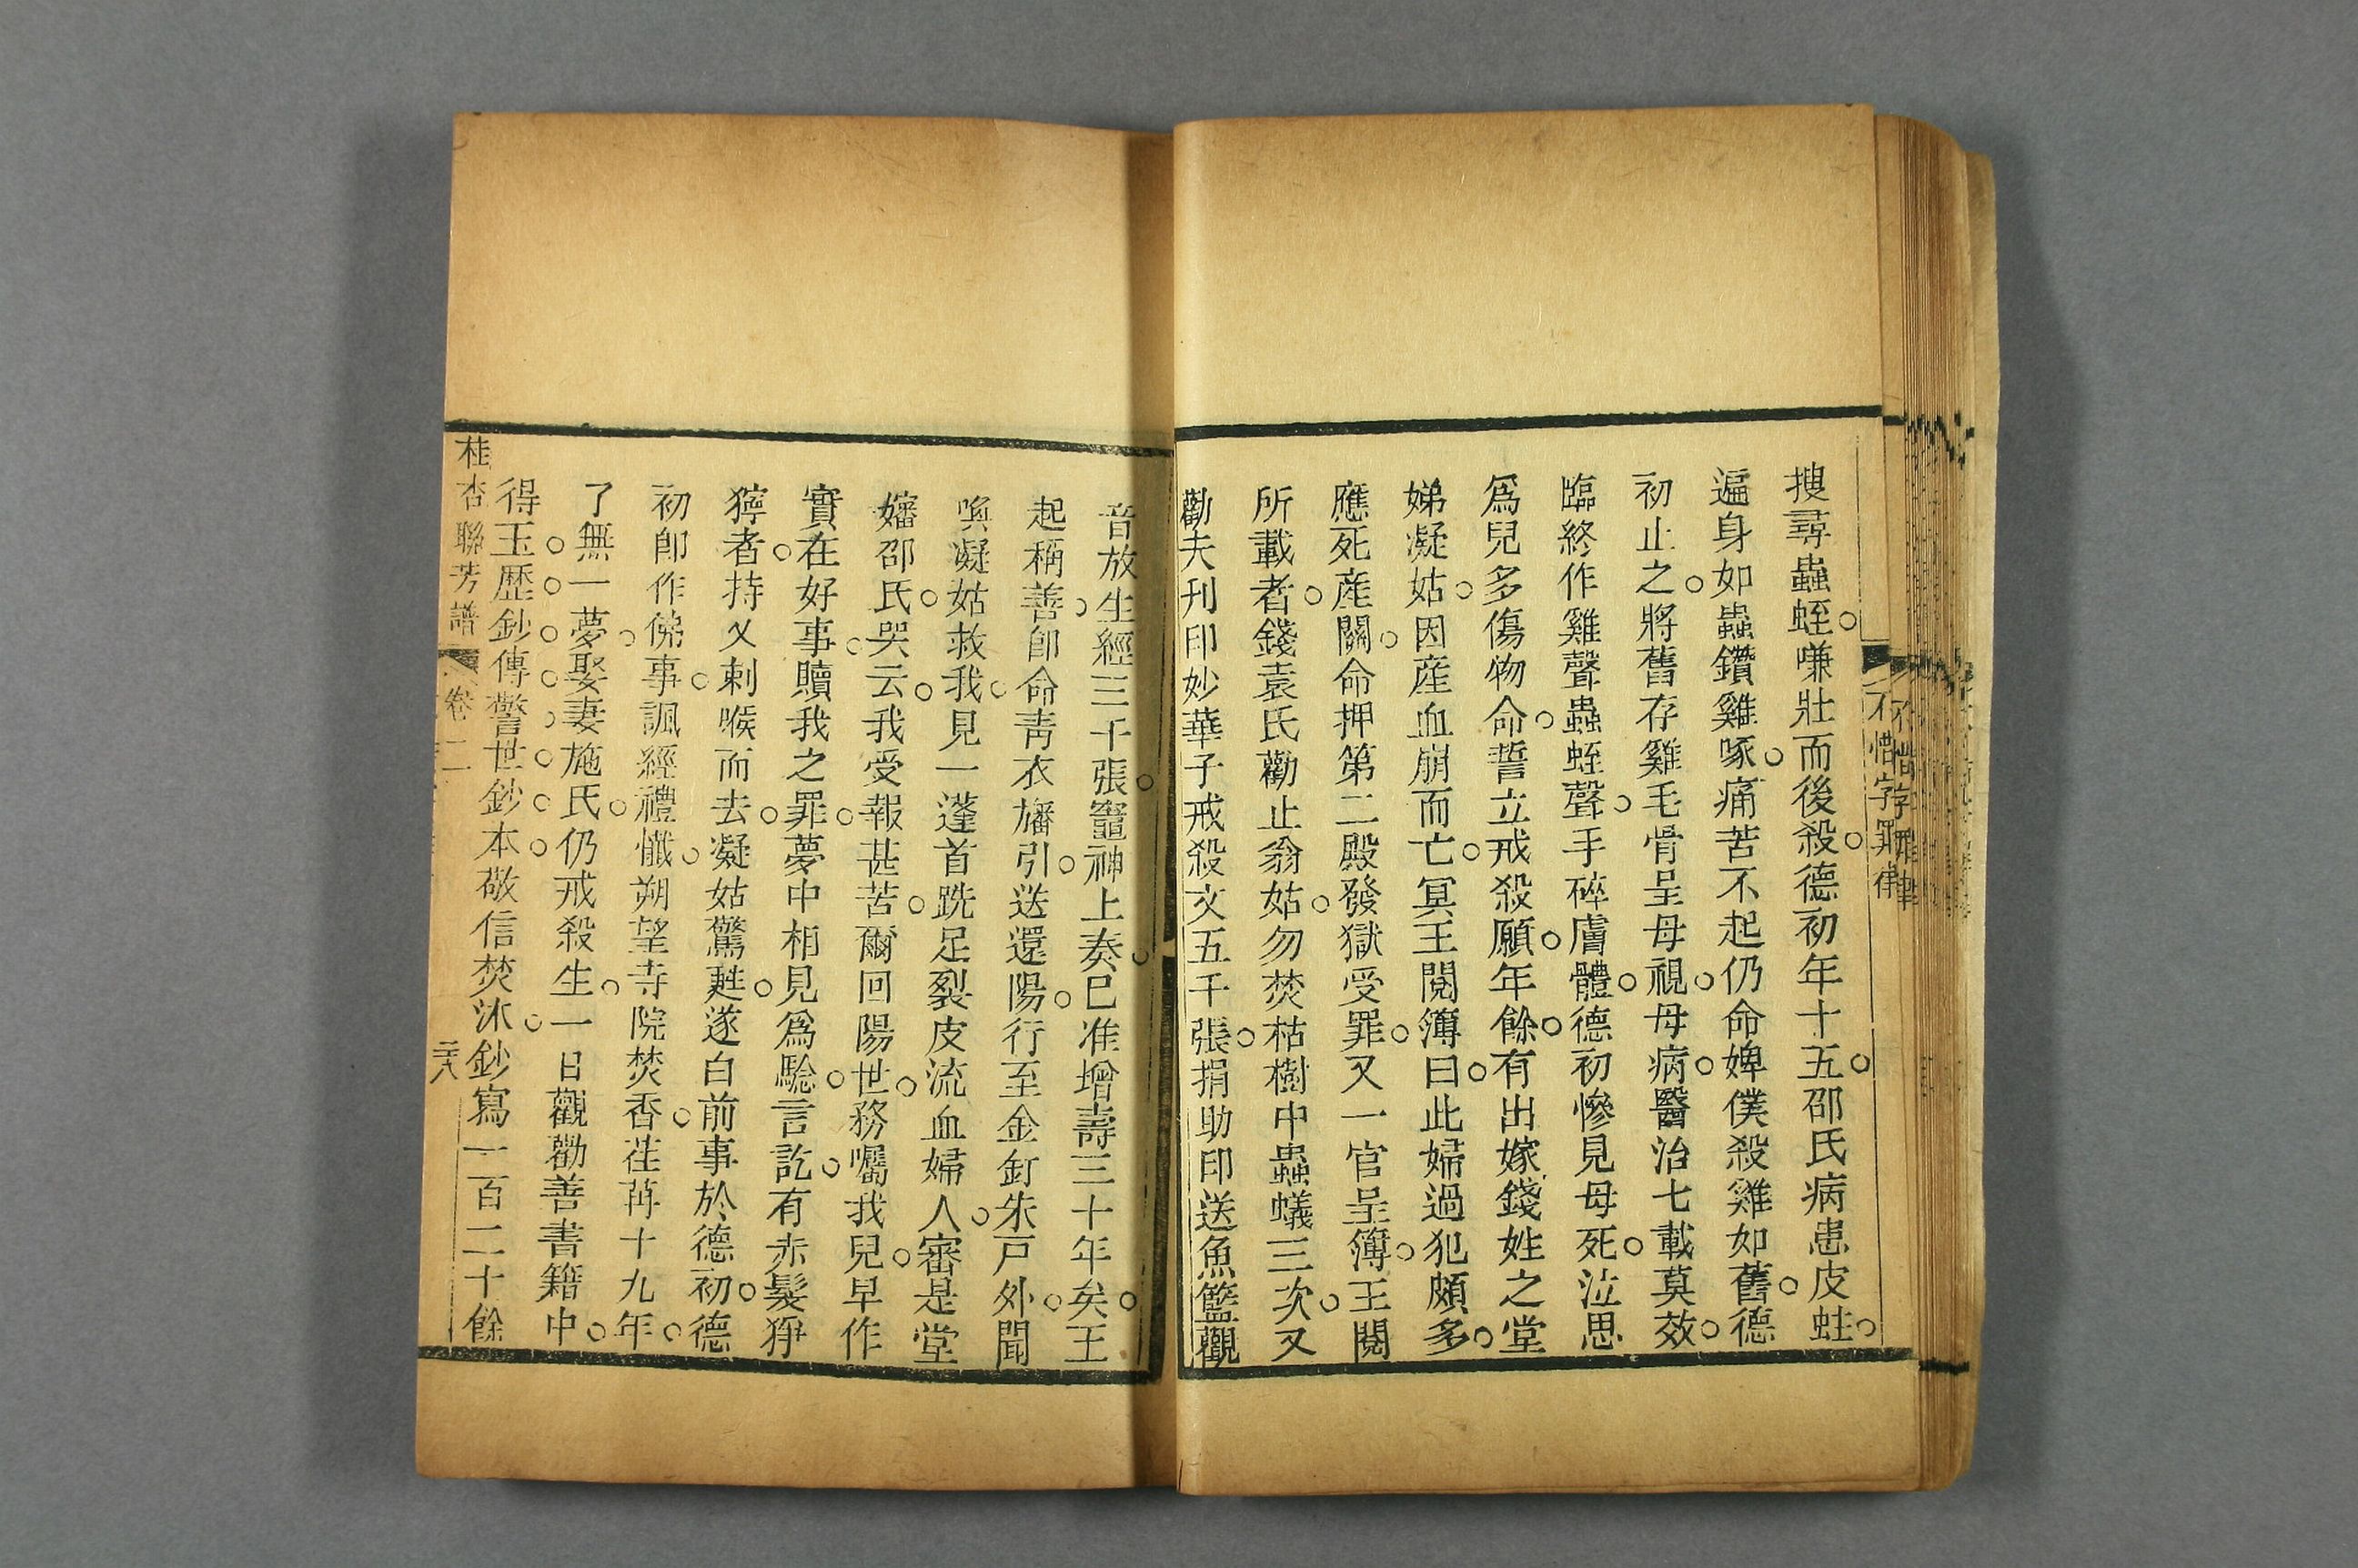 不惜字罪律
搜尋蟲蛭嗛壯而後殺德初年十五邵氏病患皮蛀
遍身如蟲鑽雞啄痛苦不起仍命婢僕殺雞如舊德
初止之將舊存雞毛骨呈母視母病醫治七載莫效
臨終作雞聲蟲蛭聲手碎膚體德初慘見母死泣思
爲兒多傷物命誓立戒殺願年餘有出嫁錢姓之堂
娣凝姑因產血崩而亡冥王閱簿曰此婦過犯頗多
應死產關命押第二殿發獄受罪又一官呈簿王閱
所載者錢袁氏勸止翁姑勿焚枯樹中蟲蟻三次又
勸夫刊印妙華子戒殺文五千張捐助印送魚籃觀
音放生經三千張竈神上奏已准增壽三十年矣王
起稱善卽命靑衣旛引送還陽行至金釘朱戸外聞
喚凝姑救我見一蓬首跣足裂皮流血婦人審是堂
嬸邵氏哭云我受報甚苦爾回陽世務囑我兒早作
實在好事贖我之罪夢中相見爲驗言訖有赤髮猙
獰者持叉刺喉而去凝姑驚甦遂白前事於德初德
初卽作佛事諷經禮懺朔望寺院焚香荏苒十九年
了無一夢娶妻施氏仍戒殺生一日觀勸善書籍中
得玉歷鈔傳警世鈔本敬信焚沐鈔寫一百二十餘
桂杏聯芳譜 卷二 二八